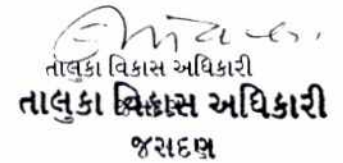 તાલુકા વિકાસ અધિકારી
તાલુકા વિકાસ અધિકારી
જસદણ